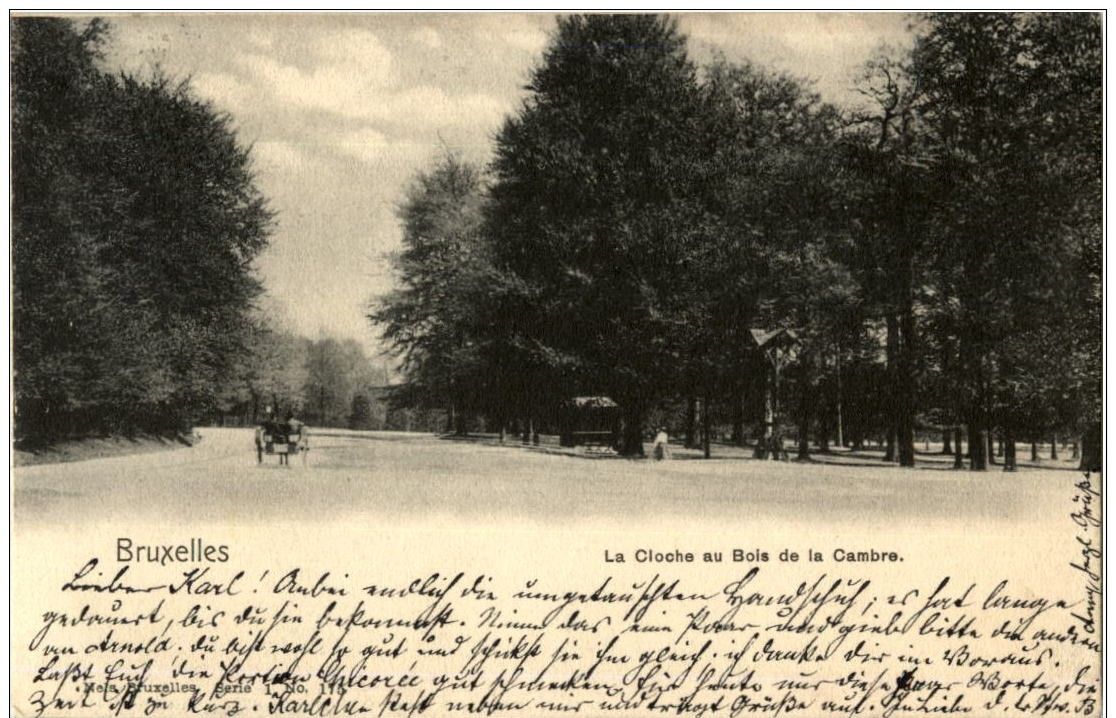 Bruxelles
La Cloche au Bois de la Cambre.
Lieber Karl! Anbei endlich die umgetauschten Handschuh; es hat lange
gedauert, bis du sie bekommst. Nimm das eine Paar und gieb bitte die andren
an Arnold. du bist wohl so gut und schickst sie ihm gleich. ich danke dir im Voraus.
Laßt Euch die Portion Chicorée gut schmecken. Für heute nur diese paar Worte, die
Nels, Bruxelles, Serie 1, No. 115
Zeit ist zu kurz. Karlchen steht neben mir und trägt Grüße auf. In Liebe d.
Grüße